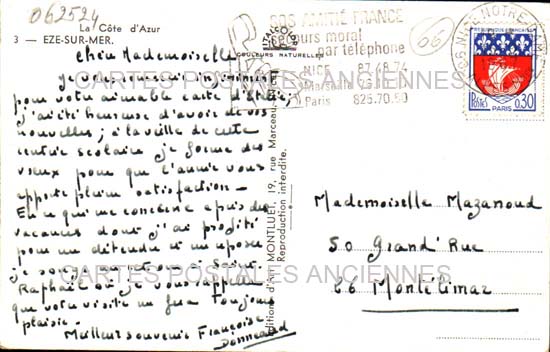 062524
La Côte d'Azur
3 — EZE-SUR-MER.
Chère Mademoiselle
Je vous remercie
pour votre aimable carte d'été,
j'ai été heureuse d'avoir de vos
nouvelles; à la veille de cette
rentrée scolaire je forme des
vœux pour que l'année vous
apporte pleine satisfaction -
En ce qui me concerne après des
vacances dont j'ai profité
pour me détendre et me reposer
je Saint
Raphaël où je vous rappelle
que votre visite me fera toujours
plaisir.
Meilleur souvenir Françoise
Donneaud
ITALCOLOR
COULEURS NATURELLES
Editions d'Art MONTLUET, 19, rue Marceau,
Reproduction interdite.
SOS AMITIÉ FRANCE
secours moral
par téléphone
NICE 87.48.74
Marseille
Paris 825.70.50
06
NICE NOTRE
RÉPUBLIQUE FRANÇAISE
POSTES
0,30
PARIS
Mademoiselle Mazanoud
50 Grand'Rue
26 Montélimar
CARTES POSTALES ANCIENNES
CARTES POSTALES ANCIENNES